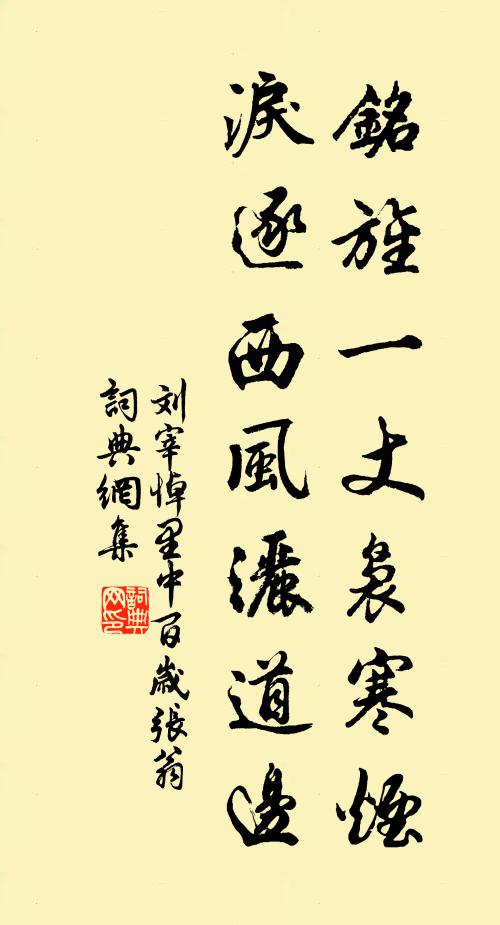 銘旌一丈裊寒煙
淚逐西風灑道邊
刘宰悼里中百歲張翁
詞典網集
詞典网印